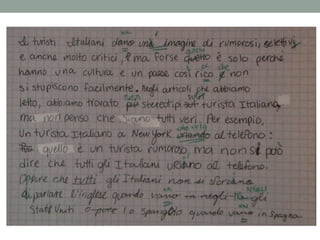 I turisti Italiani dano una imagine di rumorosi, selettivi
e anche molto critici, ma Forse questo è solo perché
hanno una cultura e un paese così ricco che non
si stupiscono facilmente. Negli articoli che abbiamo
letto, abbiamo trovato più stereotipi sul turista Italiano,
ma non penso che siano tutti veri. Per esempio,
Un turista Italiano a New York urlando al telefono:
quello è un turista rumoroso, ma non si può
dire che tutti gli Italiani urlano al telefono.
Oppure che tutti gli Italiani non si sforzano
di parlare l'inglese quando vano negli
Stati Uniti o pure lo spagnolo quando vano in Spagna